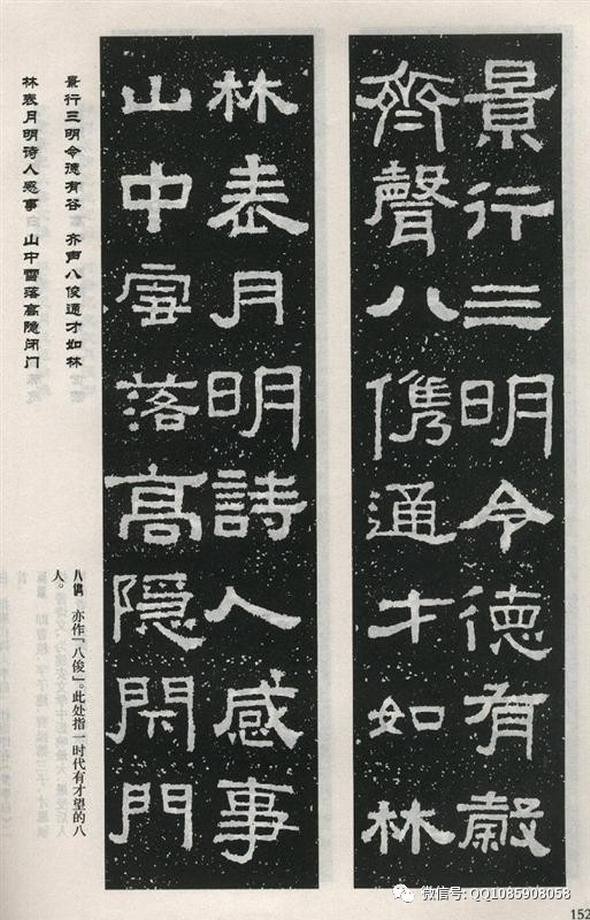 景行三明令德有穀
齊聲八儁通才如林
林表月明詩人感事
山中雪落高隱閉門
景行三明令德有谷 齐声八俊通才如林
林表月明诗人感事 山中雪落高隐闭门
八儁 亦作「八俊」。此处指一时代有才望的八
人。
微信号: QQ1085908058
152